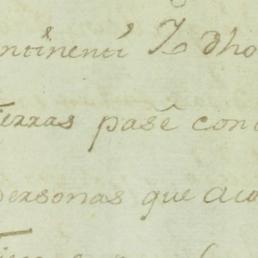 ontinenti Yo dho
tierras pasé con
personas que aco